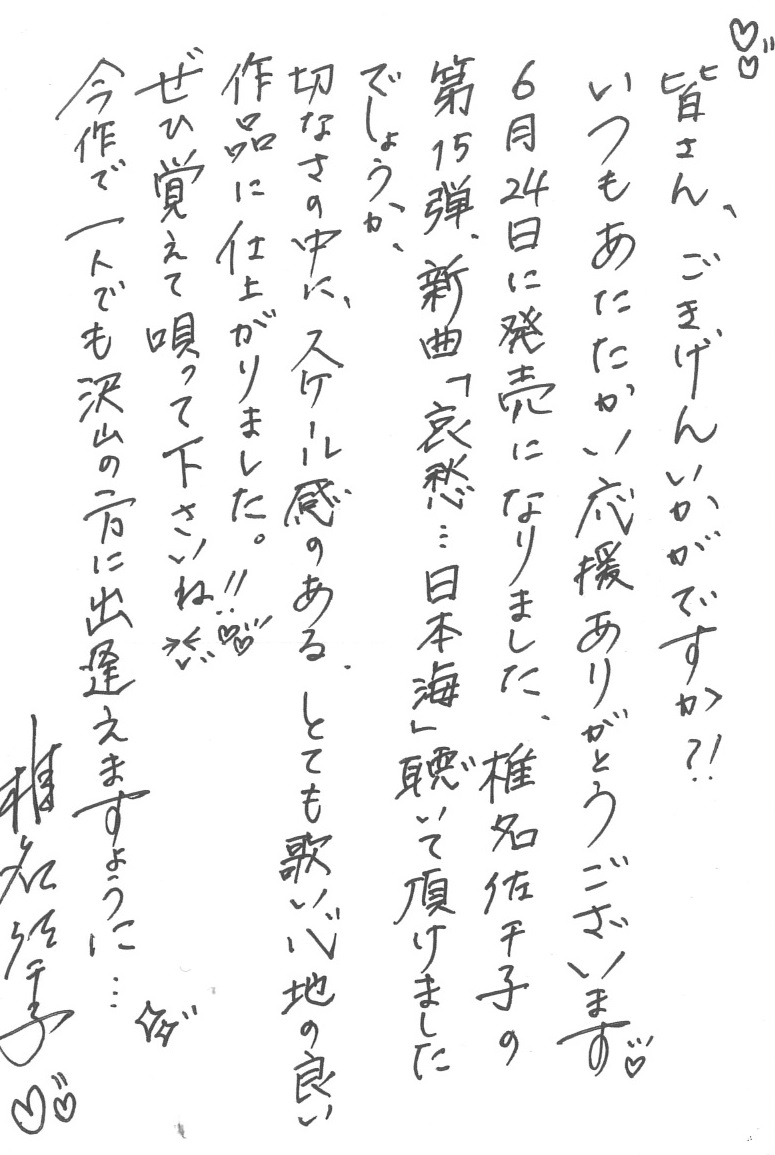 皆さん、ごきげんいかがですか?!
いつもあたたかい応援ありがとうございます♡
6月24日に発売になりました、椎名佐千子の
第15弾、新曲「哀愁…日本海」聴いて頂けました
でしょうか、
切なさの中に、スケール感のある、とても歌い心地の良い
作品に仕上がりました。!!
ぜひ覚えて唄って下さいね
今作で一人でも沢山の方に出逢えますように…
椎名佐千子